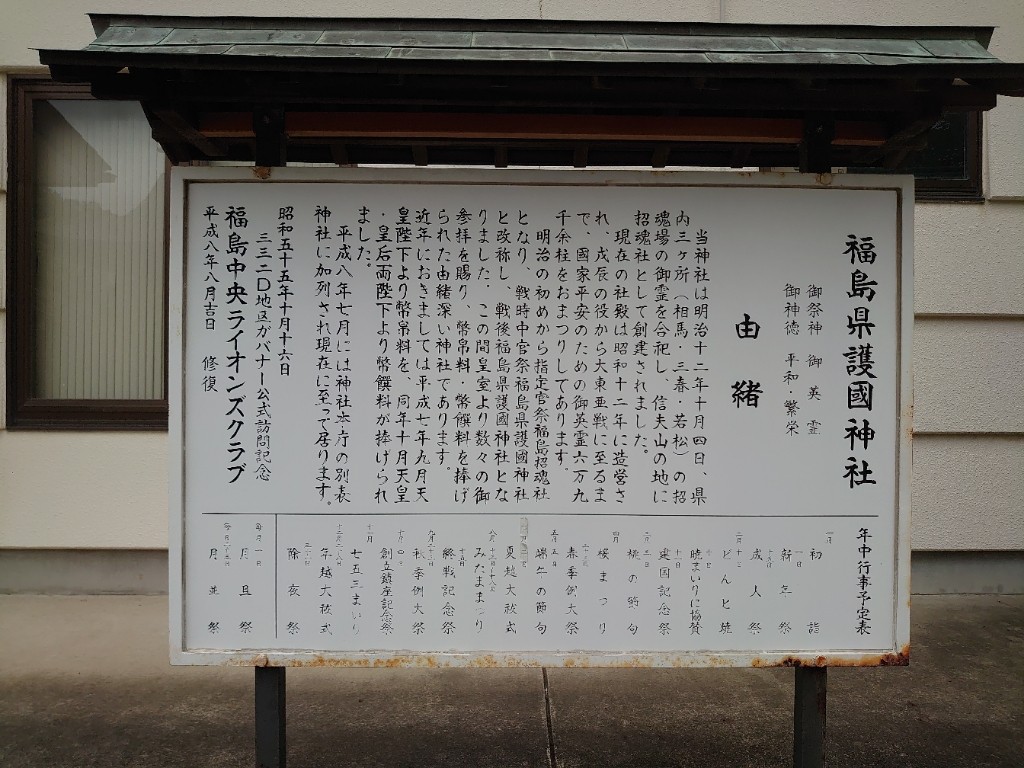 福島県護國神社
御祭神 御英霊
御神徳 平和 繁栄
由緒
当神社は明治十二年十月四日、県
内三ヶ所（相馬・三春・若松）の招
魂場の御霊を合祀し、信夫山の地に
招魂社として創建されました。
現在の社殿は昭和十二年に造営さ
れ、戊辰の役から大東亜戦に至るま
で、國家平安のための御英霊六万九
千余柱をおまつりしてあります。
明治の初めから指定官祭福島招魂社
となり、戦時中官祭福島県護國神社
と改称し、戦後福島県護國神社とな
りました、この間皇室より数々の御
参拝を賜り、幣帛料・幣饌料を捧げ
られた由緒深い神社であります。
近年におきましては平成七年九月天
皇陛下より幣帛料を、同年十月天皇
・皇后両陛下より幣饌料が捧げられ
ました。
平成八年七月には神社本庁の別表
神社に加列され現在に至って居ります。
昭和五十五年十月十六日
三三二D地区ガバナー公式訪問記念
福島中央ライオンズクラブ
平成八年八月吉日 修復
年中行事予定表
一月
初詣
一日
新年祭
成人祭
どんと焼
暁まいりに協賛
十一日
建国記念祭
桃の節句
四月
桜まつり
春季例大祭
五月五日
端午の節句
夏越大祓式
みたままつり
終戦記念祭
秋季例大祭
創立鎮座記念祭
十一月
七五三まいり
年越大祓式
除夜祭
毎月一日
月旦祭
月並祭